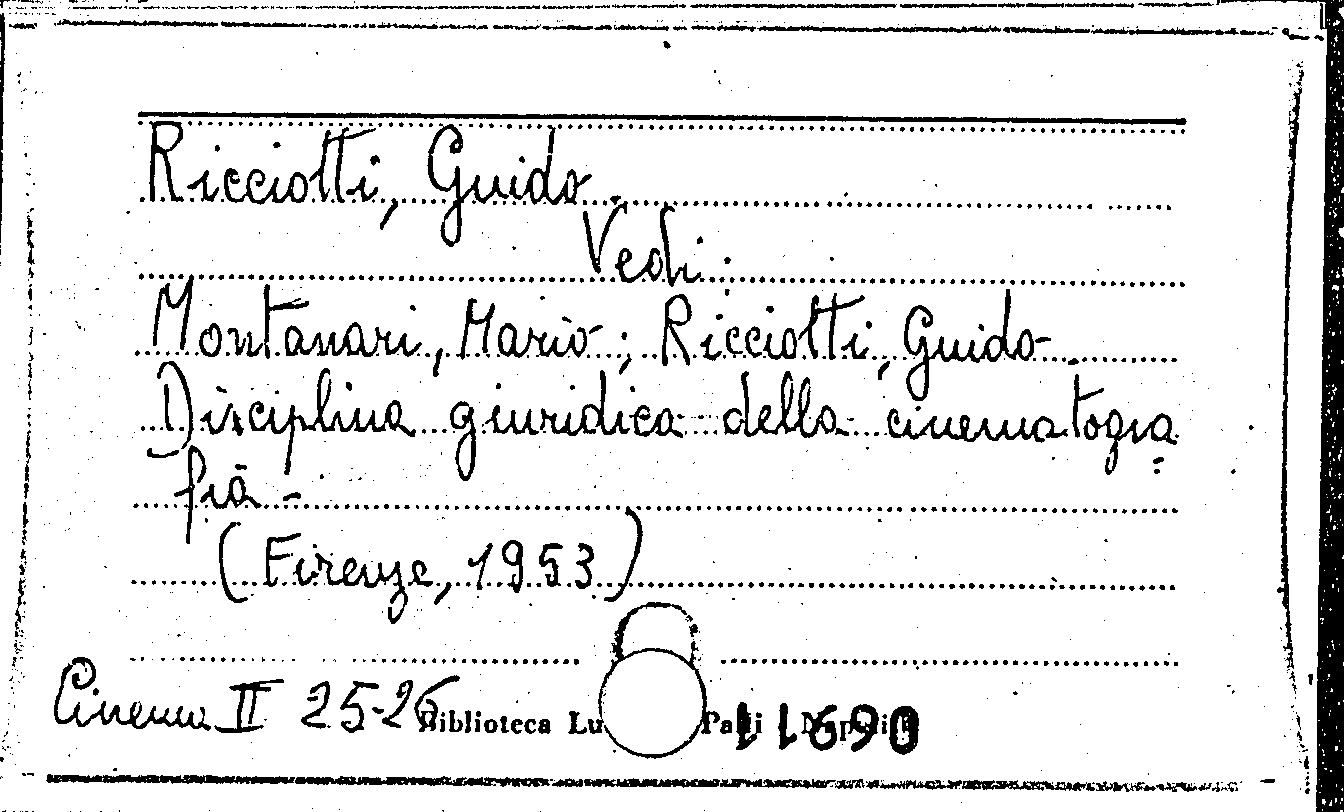 Ricciotti, Guido.
Vedi:
Montanari, Mario; Ricciotti, Guido
Disciplina giuridica della cinematogra
fia -
(Firenze, 1953)
Cinema II 25-26
Biblioteca Lu Pa li Napoli
11690